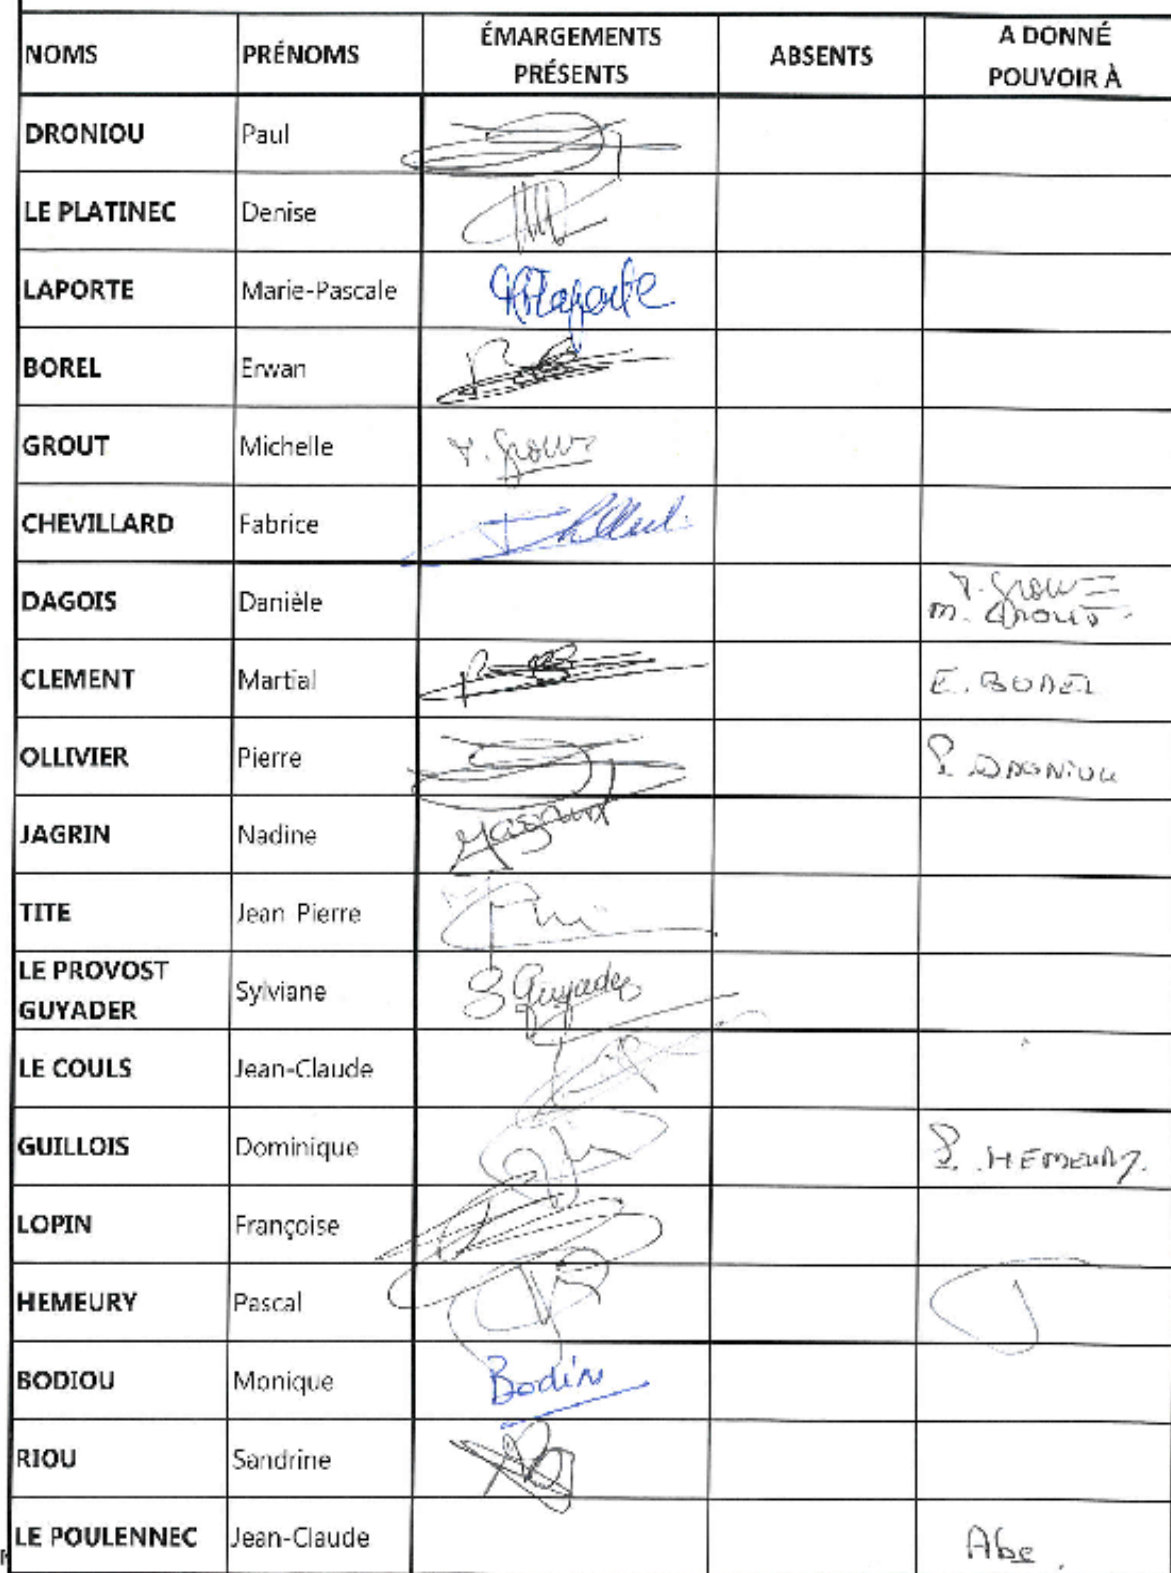 NOMS PRÉNOMS ÉMARGEMENTS PRÉSENTS ABSENTS A DONNÉ POUVOIR À
DRONIOU Paul
LE PLATINEC Denise
LAPORTE Marie-Pascale Laporte
BOREL Erwan
GROUT Michelle
CHEVILLARD Fabrice
DAGOIS Danièle M. GROUT
CLEMENT Martial E. BOREL
OLLIVIER Pierre P. DRONIOU
JAGRIN Nadine Jagrin
TITE Jean Pierre
LE PROVOST GUYADER Sylviane S Guyader
LE COULS Jean-Claude
GUILLOIS Dominique P. HEMEURY.
LOPIN Françoise
HEMEURY Pascal
BODIOU Monique Bodiou
RIOU Sandrine
LE POULENNEC Jean-Claude Abs.